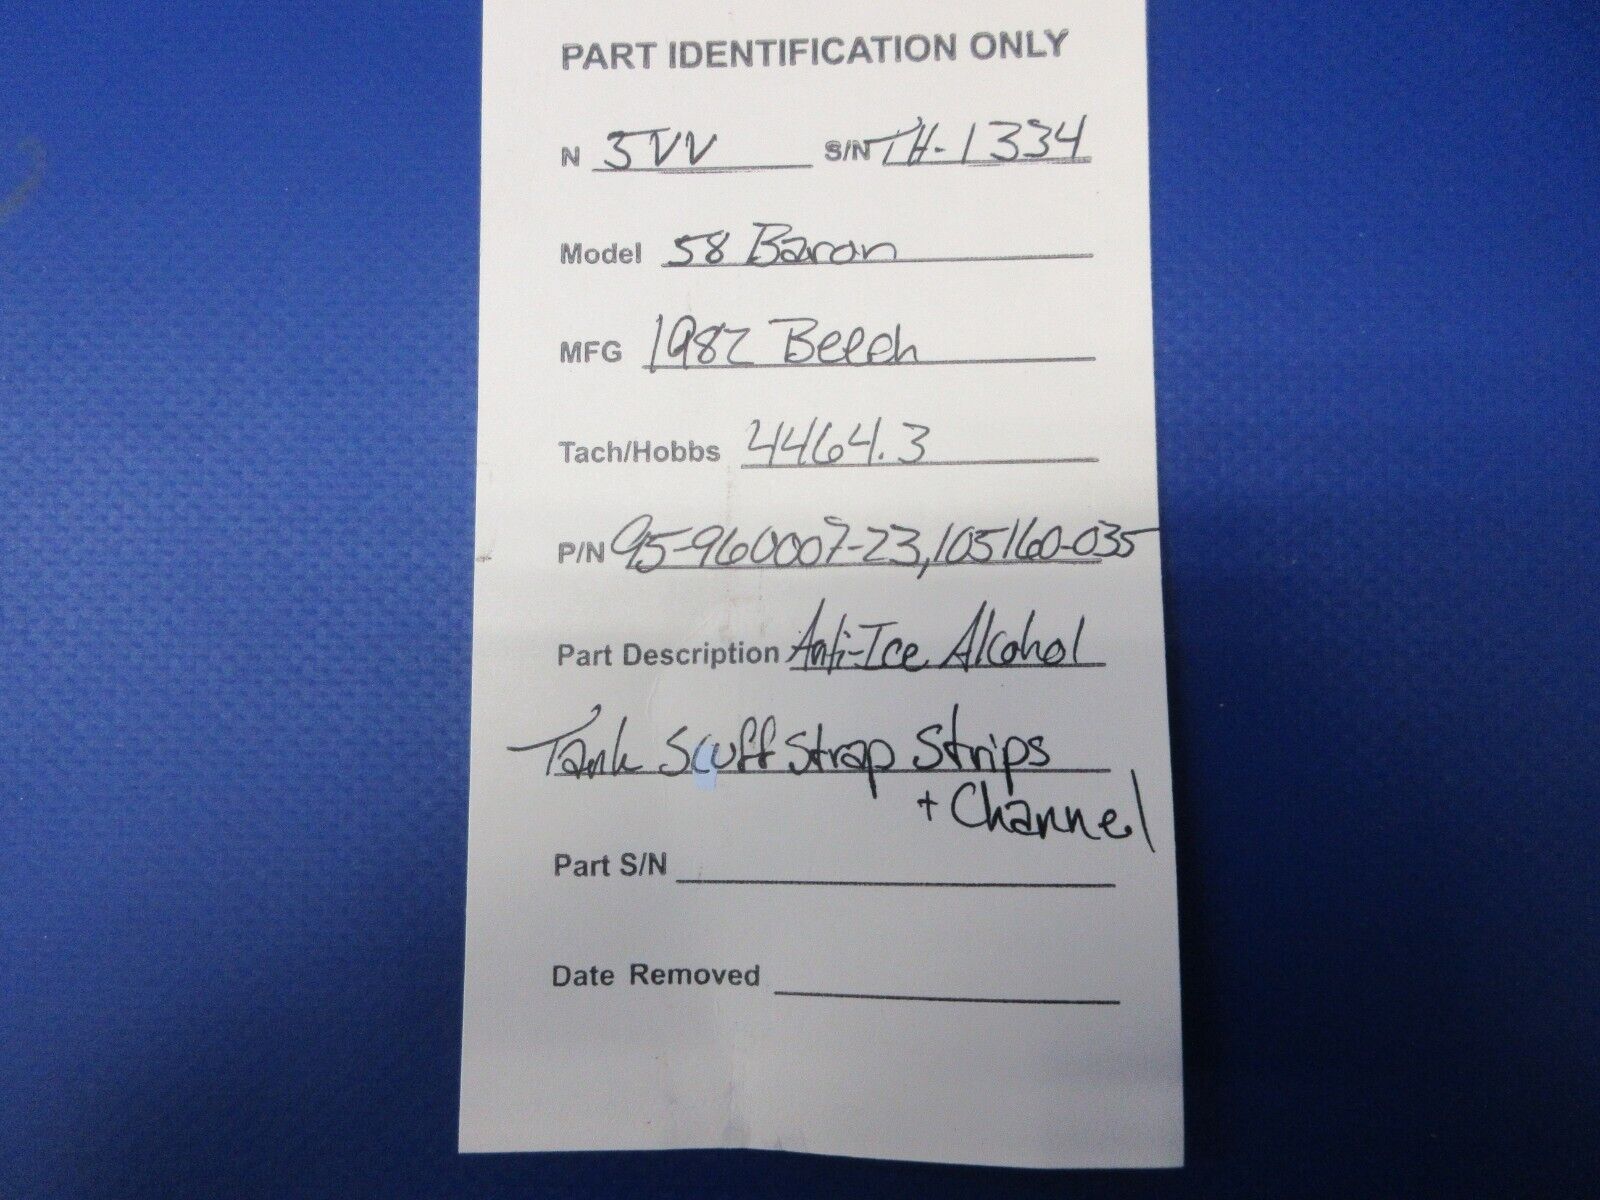 PART IDENTIFICATION ONLY
N 3VV S/N TH-1334
Model 58 Baron
MFG 1982 Beech
Tach/Hobbs 4464.3
P/N 95-960007-23, 105160-035
Part Description Anti-Ice Alcohol
Tank Scuff Strap Strips
+ Channel
Part S/N
Date Removed